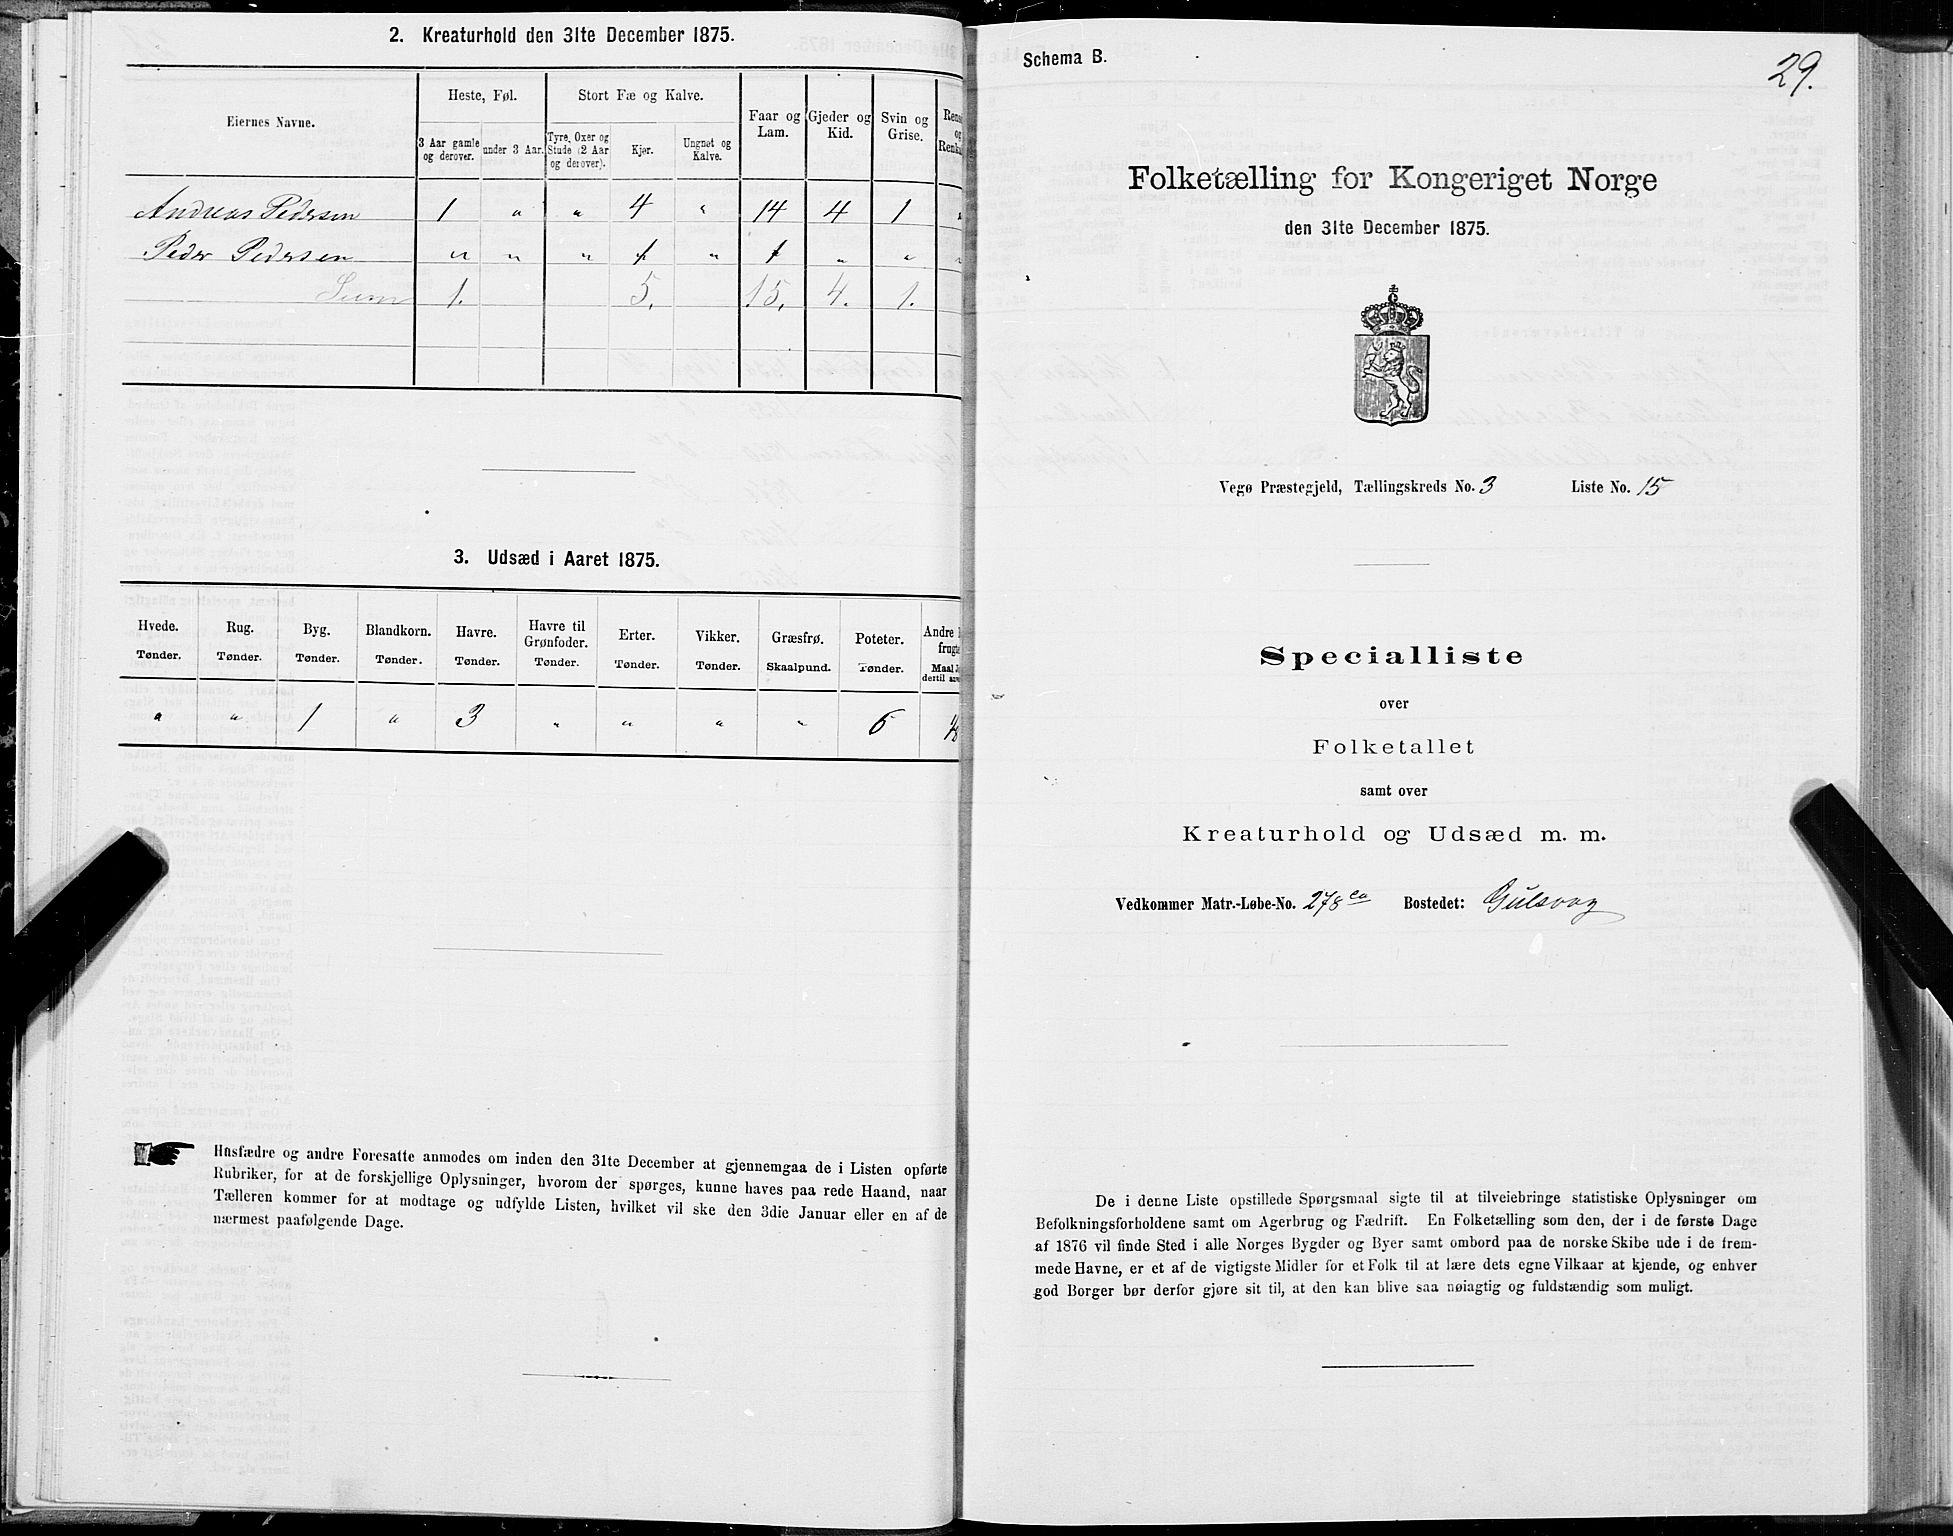 2. Kreaturhold den 31te December 1875.
Eiernes Navne.
Heste, Føl.
Stort Fæ og Kalve.
Faar og Lam.
Gjeder og Kid.
Svin og Grise.
3 Aar gamle og derover.
under 3 Aar.
Tyre, Oxer og Stude (2 Aar og derover).
Kjør.
Ungnøt og Kalve.
Andreas Pedersen 1 " " 4 " 14 4 1 "
Peder Pedersen " " " 1 " 1 " " "
Sum 1. 5. 15. 4. 1.
3. Udsæd i Aaret 1875.
Hvede. Rug. Byg. Blandkorn. Havre. Havre til Grønfoder. Erter. Vikker. Græsfrø. Poteter. Andre
Tønder. Tønder. Tønder. Tønder. Tønder. Tønder. Tønder. Tønder. Skaalpund. Tønder. Maal
" " 1 " 3 " " " " 6 1/8
Husfædre og andre Foresatte anmodes om inden den 31te December at gjennemgaa de i Listen opførte
Rubriker, for at de forskjellige Oplysninger, hvorom der spørges, kunne haves paa rede Haand, naar
Tælleren kommer for at modtage og udfylde Listen, hvilket vil ske den 3die Januar eller en af de
nærmest paafølgende Dage.
Schema B.
29.
Folketælling for Kongeriget Norge
den 31te December 1875.
Vegø Præstegjeld, Tællingskreds No. 3 Liste No. 15
Specialliste
over
Folketallet
samt over
Kreaturhold og Udsæd m. m.
Vedkommer Matr.-Løbe-No. 278 Bostedet: Gulsvag
De i denne Liste opstillede Spørgsmaal sigte til at tilveiebringe statistiske Oplysninger om
Befolkningsforholdene samt om Agerbrug og Fædrift. En Folketælling som den, der i de første Dage
af 1876 vil finde Sted i alle Norges Bygder og Byer samt ombord paa de norske Skibe ude i de frem-
mede Havne, er et af de vigtigste Midler for et Folk til at lære dets egne Vilkaar at kjende, og enhver
god Borger bør derfor gjøre sit til, at den kan blive saa nøiagtig og fuldstændig som muligt.